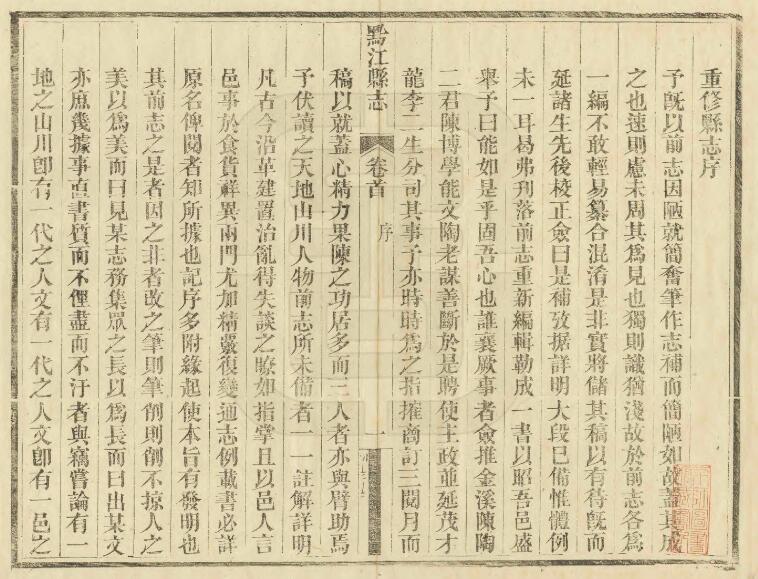 重修縣志序
予旣以前志因陋就簡奮筆作志補而簡陋如故蓋其成
之也速則慮未周其爲見也獨則識猶淺故於前志各爲
一編不敢輕易纂合混淆是非實將儲其稿以有待旣而
延諸生先後校正僉曰是補攷据詳明大段已備惟體例
未一耳曷弗刋落前志重新編輯勒成一書以昭吾邑盛
舉予曰能如是乎固吾心也誰襄厥事者僉推金溪陳陶
二君陳博學能文陶老謀善斷於是聘使主政並延茂才
龍李二生分司其事予亦時時爲之指摧商訂三閱月而
黔江縣志
卷首
序
一
稿以就蓋心精力果陳之功居多而三人者亦與臂助焉
予伏讀之天地山川人物前志所未備者一一註解詳明
凡古今沿革建置治亂得失談之瞭如指掌且以邑人言
邑事於食貨祥異兩門尤加精覈復變通志例載書必詳
原名俾閱者知所據也記序多附緣起使本旨有發明也
其前志之是者因之非者改之筆則筆削則削不掠人之
美以爲美而曰見某志務集眾之長以爲長而曰出某文
亦庶幾據事直書質而不俚盡而不汙者與竊嘗論有一
地之山川卽有一代之人文有一代之人文卽有一邑之